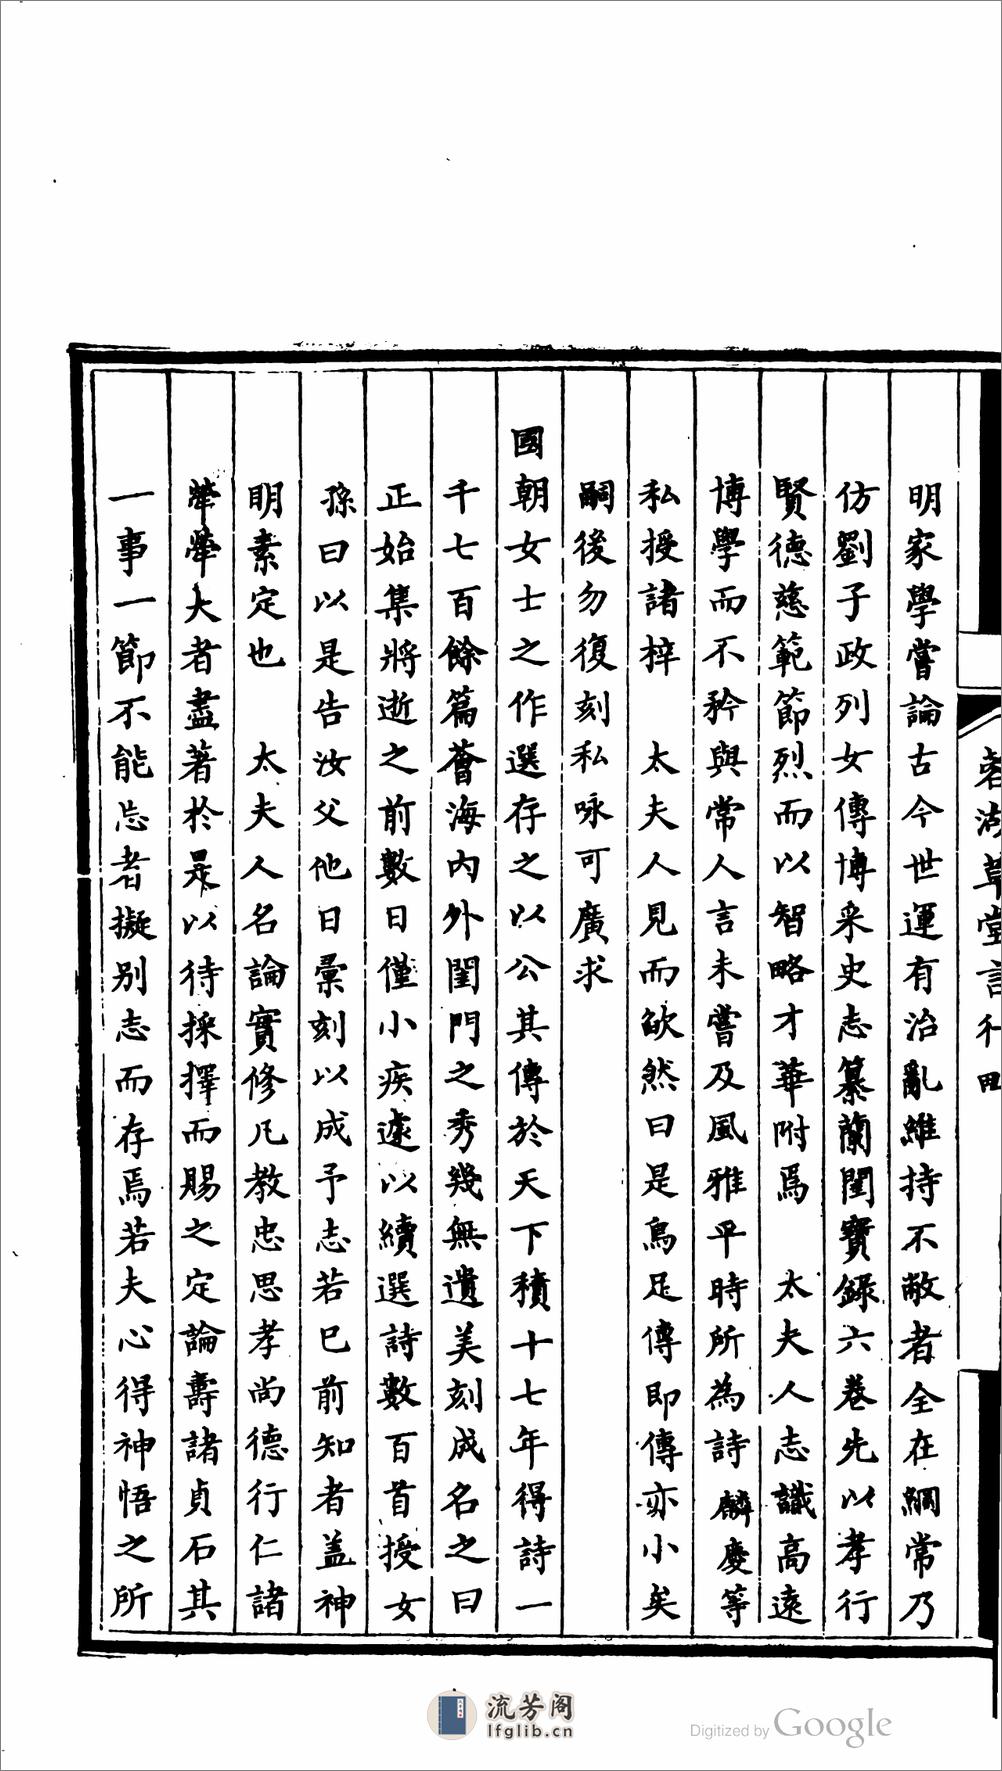 明家學嘗論古今世運有治亂維持不敝者全在綱常乃
仿劉子政列女傳博采史志纂蘭閨寶錄六卷先以孝行
賢德慈範節烈而以智略才華附焉　太夫人志識高遠
博學而不矜與常人言未嘗及風雅平時所為詩麟慶等
私授諸梓　太夫人見而欿然曰是烏足傳即傳亦小矣
嗣後勿復刻私咏可廣求
國朝女士之作選存之以公其傳於天下積十七年得詩一
千七百餘篇薈海內外閨門之秀幾無遺美刻成名之曰
正始集將逝之前數日僅小疾遽以續選詩數百首授女
孫曰以是告汝父他日彙刻以成予志若已前知者蓋神
明素定也　太夫人名論實修凡教忠思孝尚德行仁諸
犖犖大者盡著於是以待採擇而賜之定論壽諸貞石其
一事一節不能忘者擬別志而存焉若夫心得神悟之所
草堂
流芳阁
lfglib.cn
Digitized by Google